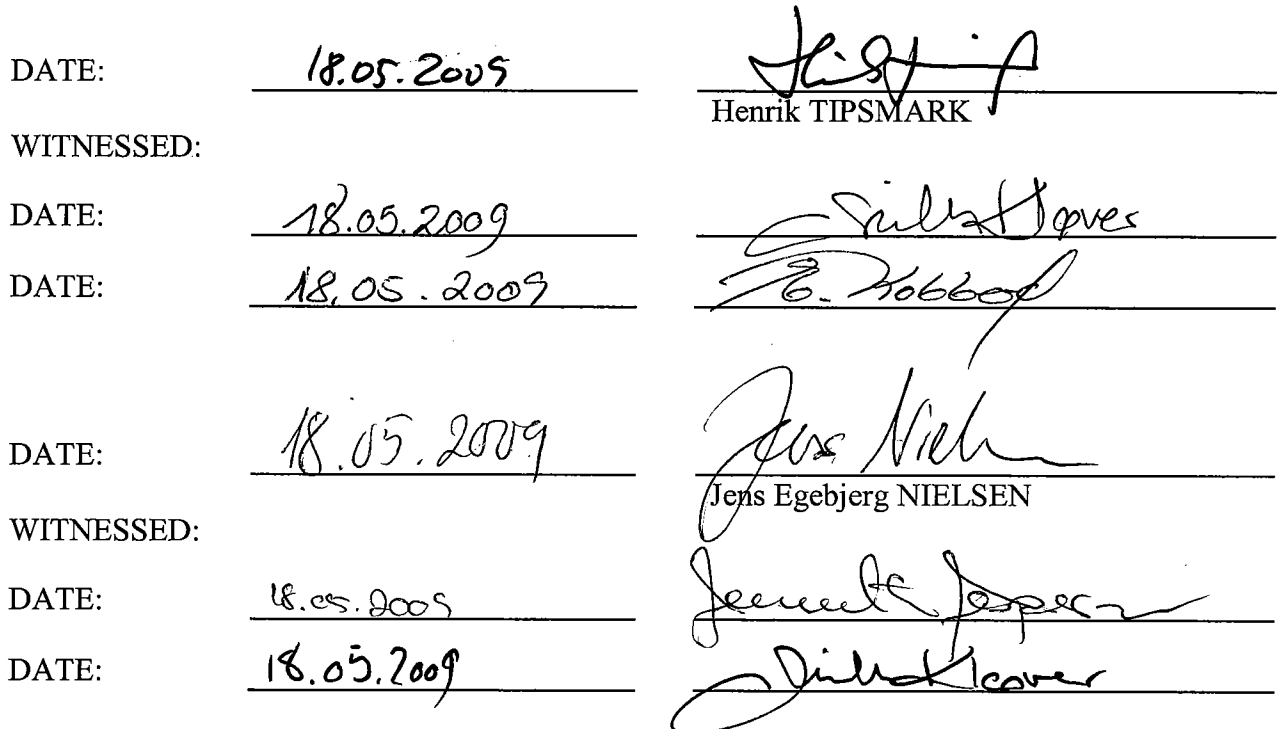 DATE: 18.05.2009
Henrik TIPSMARK
WITNESSED:
DATE: 18.05.2009
DATE: 18.05.2009 E.
DATE: 18.05.2009 Jens
Jens Egebjerg NIELSEN
WITNESSED:
DATE: 18.05.2009 Jespersen
DATE: 18.05.2009